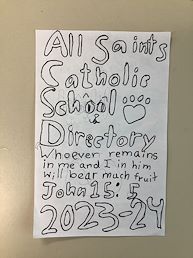 All Saints
Catholic
School
&
Directory
Whoever remains
in me and I in him
will bear much fruit
John 15:5
2023-24